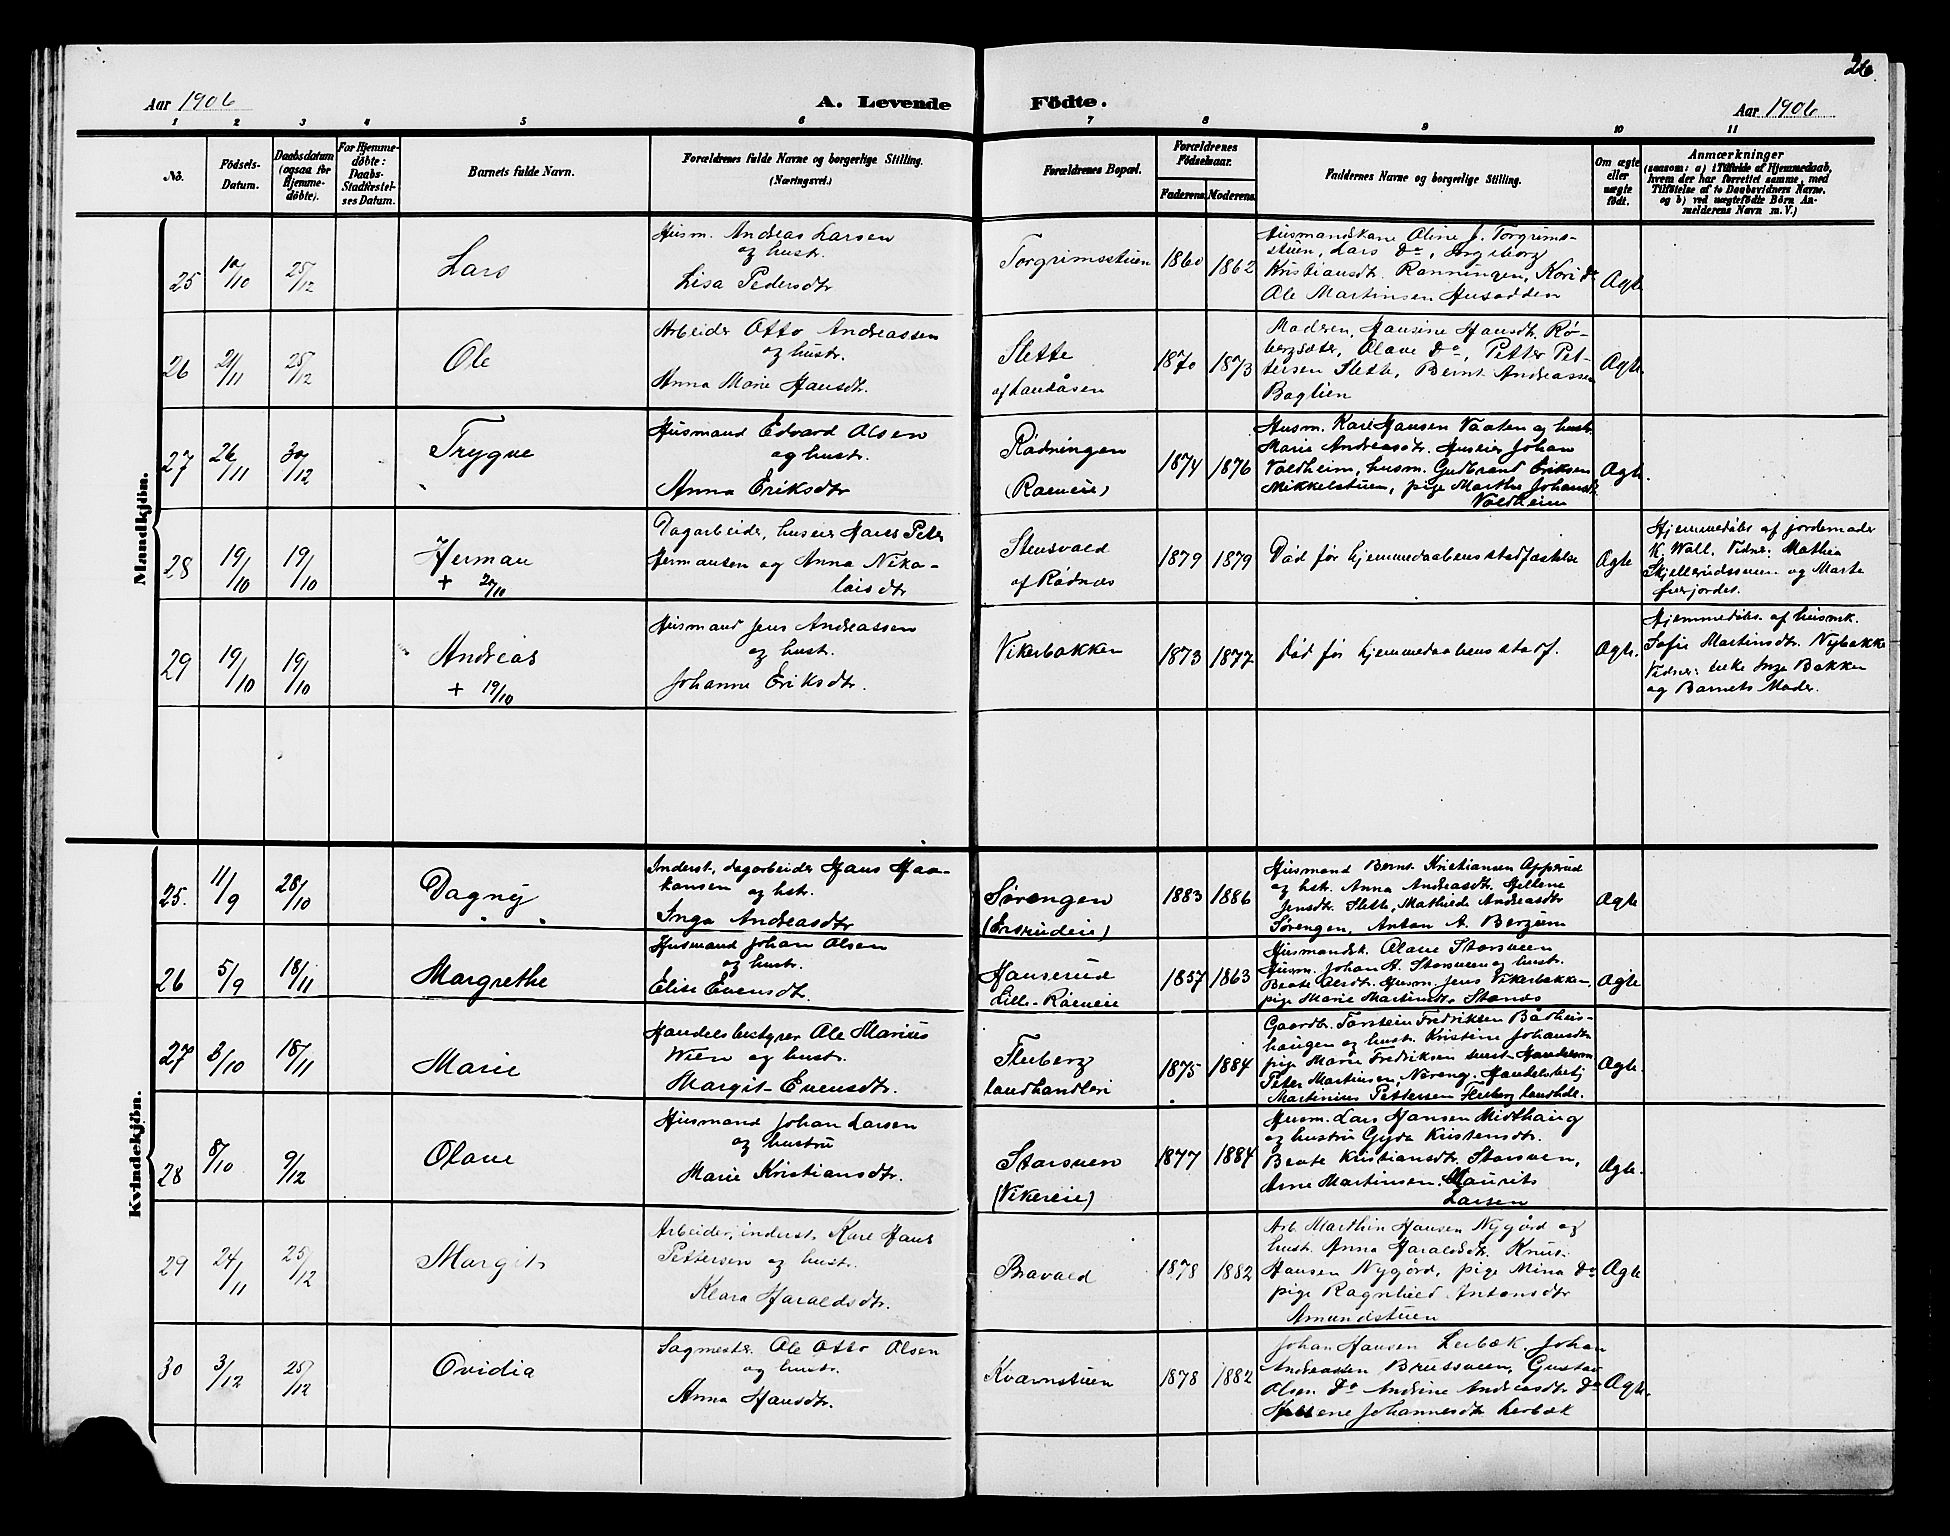 26.
Aar 1906
A. Levende Födte.
Aar 1906
1 2 3 4 5 6 7 8 9 10 11
No.
Födsels-
Datum.
Daabsdatum
(ogsaa for
Hjemme-
döbte).
For Hjemme-
döbte:
Daabs-
Stadfæstel-
ses Datum.
Barnets fulde Navn.
Forældrenes fulde Navne og borgerlige Stilling.
(Næringsvei.)
Forældrenes Bopæl.
Forældrenes
Födselsaar.
Faderens. Moderens.
Faddernes Navne og borgerlige Stilling.
Om ægte
eller
uægte
födt.
Anmærkninger
(saasom: a) i Tilfælde af Hjemmedaab,
hvem der har forrettet samme, med
Tilföielse af to Daabsvidners Navne.
og b) ved uægtefödte Börn An-
melderens Navn m. V.)
Mandkjön.
25 10/10 25/12
Lars
Husm. Andreas Larsen
og hustr.
Lisa Pedersdtr
Torgrimsstuen
1860 1862
Husmandskone Oline J. Torgrims-
stuen, Lars Do, Ingeborg
Kristiansdtr. Rønningen, Kari Do
Ole Martinsen Husodden
Ægte
26 21/11 25/12
Ole
Arbeider Otto Andreassen
og hustr.
Anna Marie Hansdtr.
Slette
af Landåsen
1870 1873
Moderen, Hansine Hansdtr. Rø-
bergsæter, Olave Do, Petter Pet-
tersen Slette, Bernt Andreassen
Baglien
Ægte
27 26/11 30/12
Trygve
Husmand Edvard Olsen
og hustr.
Anna Eriksdtr
Rødningen
(Røeneie)
1874 1876
Husm. Karl Hansen Vaaten og hustr.
Marie Andreasdtr. Huseier Johan
Valdheim, husm. Gudbrand Eriksen
Mikkelstuen, pige Marthe Johansdtr.
Valdheim
Ægte.
28 19/10 19/10
Herman
+ 20/10
Dagarbeider, huseier Hans Peter
Hermansen og Anna Niko-
laisdtr
Stensvold
af Rødnæs
1879 1879
Død før hjemmedaabens stadfæstelse
Ægte
Hjemmedøbt af jordemoder
K. Wall. Vidner: Mathea
Skjellerudssveen og Marte
Fierjordet.
29 19/10 19/10
Andreas
+ 19/10
Husmand Jens Andreassen
og hustr.
Johanne Eriksdtr.
Vikerbakken
1873 1877
Død før hjemmedaabens stadf.
Ægte.
Hjemmedøbt af husmk.
Sofie Martinsdtr. Nybakke
Vidner: Inga Bakken
og Barnets Moder.
Kvindekjön.
25. 11/9 28/10
Dagny
Inderst, dagarbeider Hans Haa-
kansen og hstr.
Inga Andreasdtr
Sørengen
(Ersrudeie)
1883 1886
Husmand Bernt Kristiansen Apperud
og hstr. Anna Andreasdtr. Hellene
Jensdtr. Slette, Mathilde Andreasdtr
Sørengen, Anton A. Bergum
Ægte
26 5/9 18/11
Margrethe
Husmand Johan Olsen
og hustr.
Elise Evensdtr.
Hanserud
Lill-Røeneie
1857 1863
Husmandsk. Olave Storsveen
Husm. Johan A. Storsveen og hustr.
Beate Olesdtr. Husm. Jens Vikerbakken,
pige Marie Martinsdtr. Stenæs
Ægte
27 3/10 18/11
Marie
Handelsbestyrer Ole Marius
Wien og hustr.
Margit Evensdtr.
Fluberg
landhandleri
1875 1884
Gaardbr. Torstein Fredriksen Bødheis-
haugen og hustr. Kristine Johansdtr
pige Marie Fredriksen Handelsm
Peter Martinsen, Nereng. Handelsbetj
Martinius Pettersen Fluberg landhdl.
Ægte.
28 8/10 9/12
Olave
Husmand Johan Larsen
og hustru
Marie Kristiansdtr.
Storsveen
(Vikereie)
1877 1884
Husm. Lars Hansen Midthaug
og hustru Gyda Kristensdtr.
Beate Kristiansdtr. Storsveen,
Arne Martinsen. Maurits
Larsen
Ægte.
29 24/11 25/12
Margit
Arbeider, inderst Karl Hans
Pettersen og hustr.
Klara Haraldsdtr.
Bravold
1878 1882
Arb. Marthin Hansen Nygård og
hustr. Anna Haraldsdtr. Knut
Hansen Nygård, pige Mina Do
pige Ragnhild Antonsdtr
Amundstuen
Ægte
30 3/12 25/12
Ovidia
Sagmester Ole Otto Olsen
og hustr.
Anna Hansdtr.
Kværnstuen
1878 1882
Johan Hansen Lerbæk, Johan
Andreassen Brussveen, Gustav
Olsen Do Andrine Andreasdtr Do
Hellene Johannesdtr Lerbæk
Ægte.